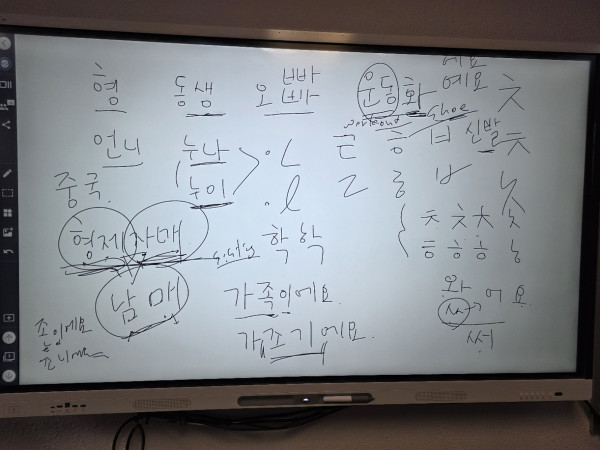 형 동생 오빠 빠 운동화 에요 예요 ㅊ
workout shoe
언니 누나 ㄷ ㅎ ㅂ 신발 ㅊ
중국. 누이 ㄹ
형제자매 학 학 ㅊ ㅊ ㅊ
ㅎ ㅎ ㅎ
남매 가족이에요. 와
어요
가조기에요. 써
조이에요